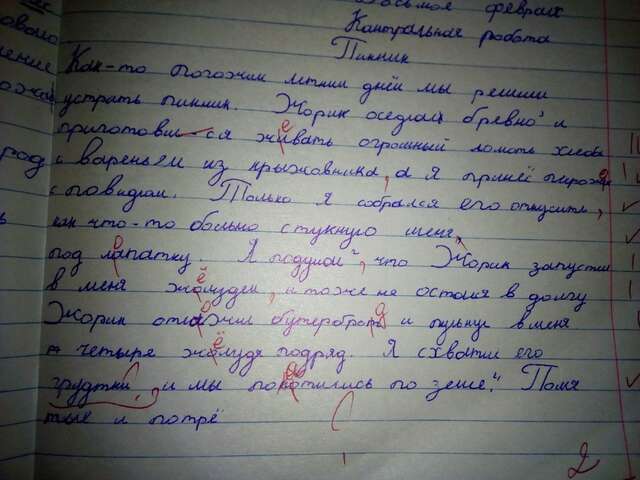 Восьмое февраля
Контрольная работа
Пикник
Как-то погожим летним днём мы решили
устрать пикник. Жорик оседлал бревно и
приготовил-ся живать огромный ломоть хлеба
с вареньем из крыжовника, а я принёс пирожок
с повидлом. Только я собрался его откусить,
как что-то больно стукнуло меня,
под лапатку. Я подумал, что Жорик запустил
в меня жолудем, и тоже не остался в долгу
Жорик отложил бутерброд и пульнул в меня
четыре жолудя подряд. Я схватил его
грудтки, и мы покотились по земле. Помя
тые и потрё
2